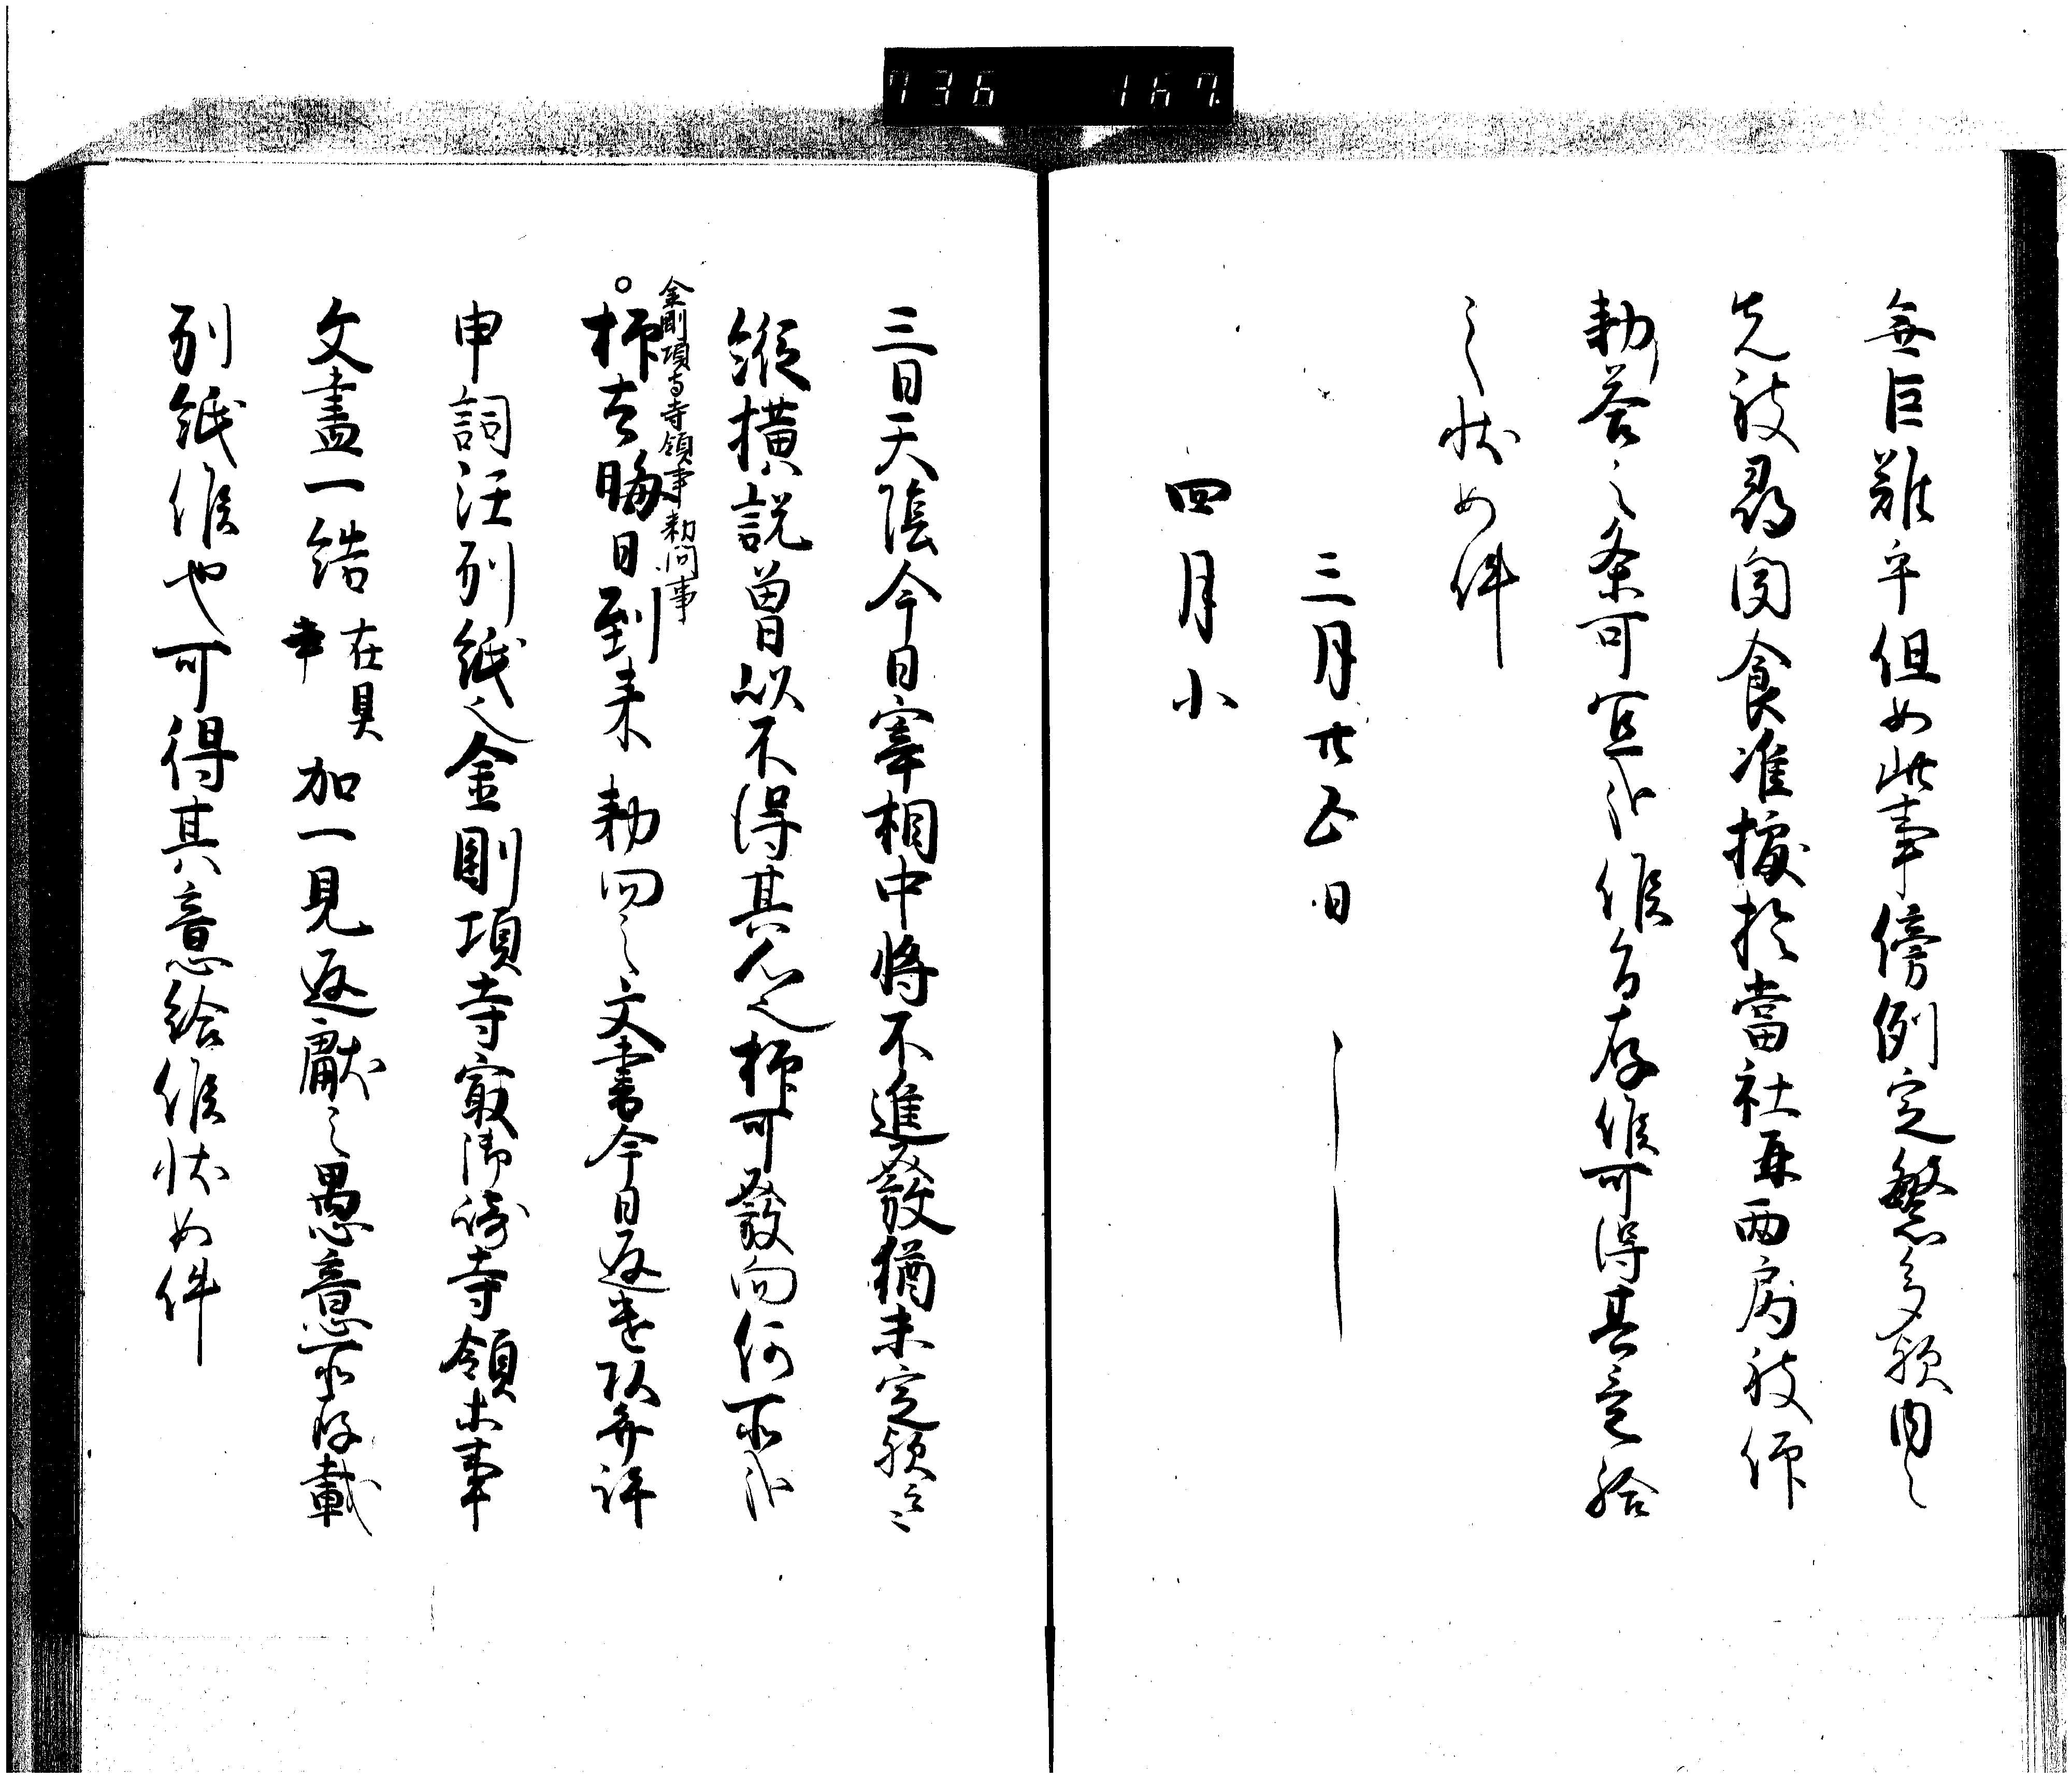 736 167
無巨難乎但如此事傍例定繁多歟内々
先被尋関食准拠於當社再両度被仰
勅答之条可宜哉候旨存候可得其意給
之状如件
三月廿五日
四月小
三日天陰今日宰相中将不進發猶未定歟云々
縦横説曽以不得其心之抑可發向何所哉
金剛頂寺寺領事勅問事
○抑去晦日到来勅問之文書今日返遣状案詳
申詞注別紙之金剛頂寺最御崎寺領末事
文書一結
在具
書
加一見返獻之愚意所存載
別紙候也可得其意給候状如件